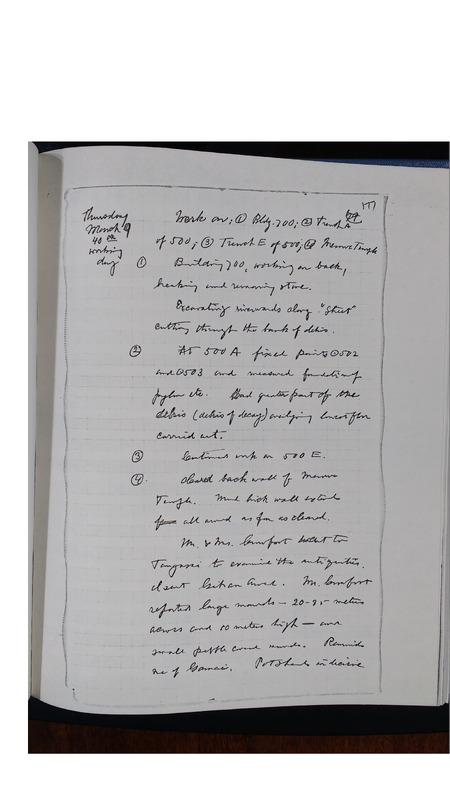 Thursday
March 9
40th
working
day
Work on; ① Bldg. 700; ② Trench A
of 500; ③ Trench E of 500; ④ Meroe Temple
① Building 700, working on back,
breaking and removing stone.
Excavating riverwards along "Street"
cutting through the bank of debris.
② At 500 A fixed points ⊙502
and ⊙503 and measured foundation of
pylon etc. Had greater part of the
debris (debris of decay) overlying lower floor
carried out.
③ Continued work on 500 E.
④ Cleared back wall of
Temple. Mud brick wall extends
all around as far as cleared.
Mr. & Mrs. went to
Tangassi to examine the antiquities
about. Mr.
reported large mounds – 20-25 metres
across and 10 metres high – and
small pebble covered mounds. Reminds
me of Gamai. Potsherds indecisive